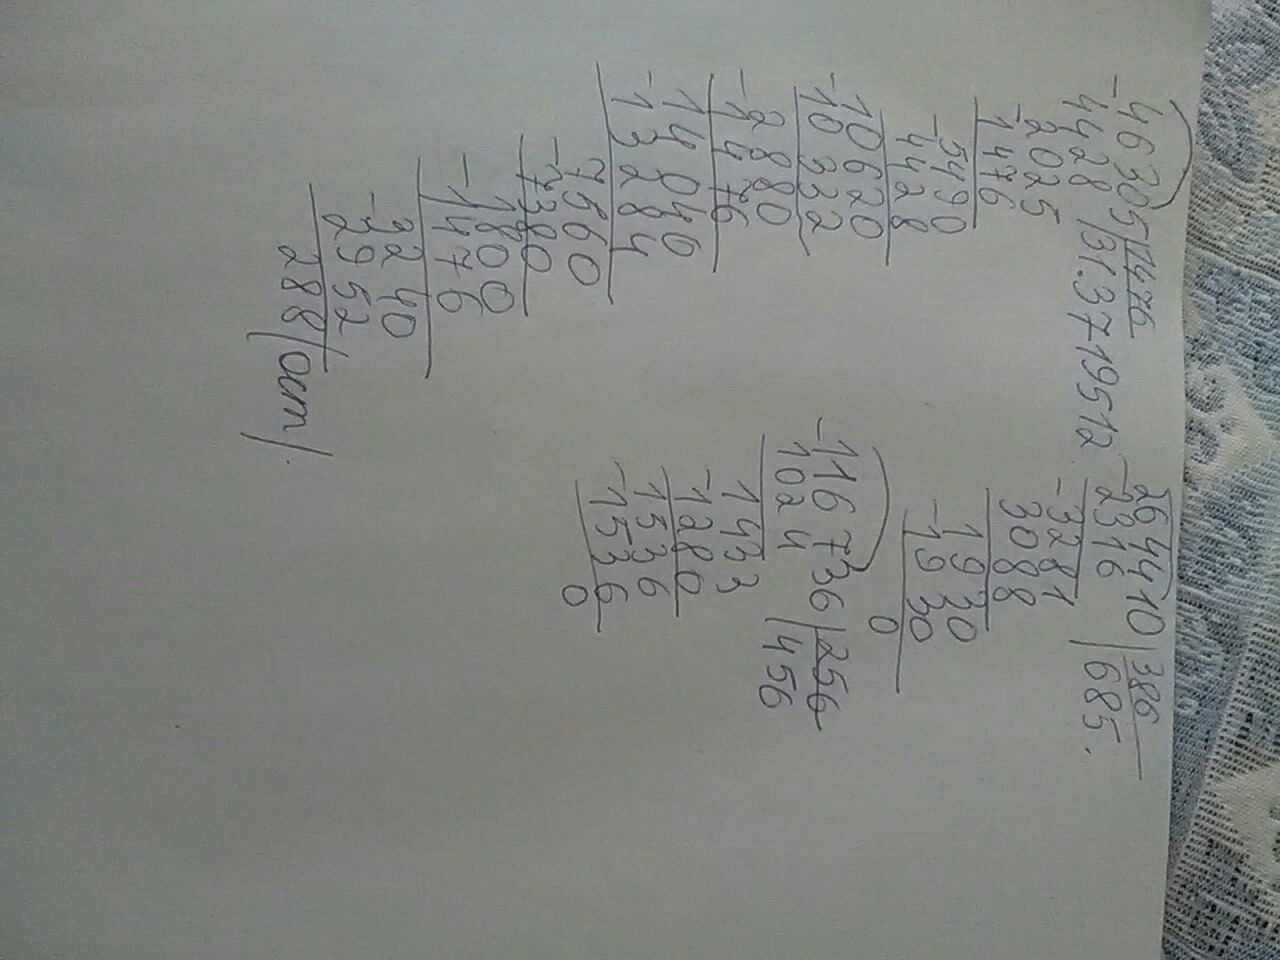 -46305|1476
4428|31.3719512
-2025
1476
-5490
4428
-10620
10332
-2880
1476
-14040
13284
-7560
7380
-1800
1476
-3240
2952
288/ост/.
-264410|386
2316|685.
-3281
3088
-1930
1930
0
-116736|256
1024|456
-1433
1280
-1536
1536
0